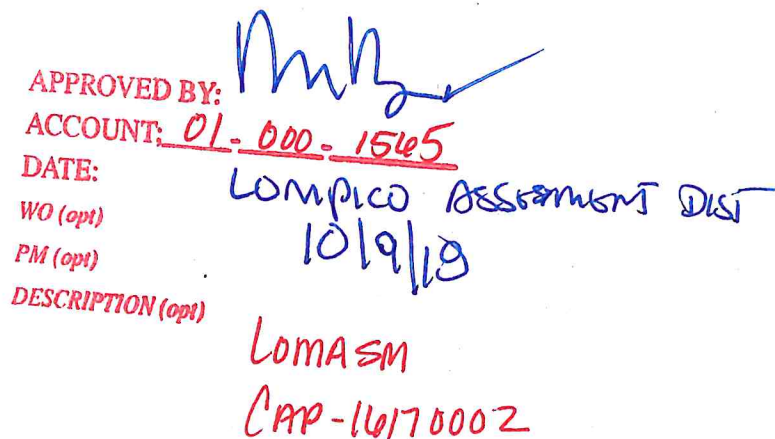 APPROVED BY:
ACCOUNT: 01-000-1565
DATE:
LOMPICO ASSESSMENT DIST
WO (opt)
10/9/18
PM (opt)
DESCRIPTION (opt)
LOMASM
CAP-16170002